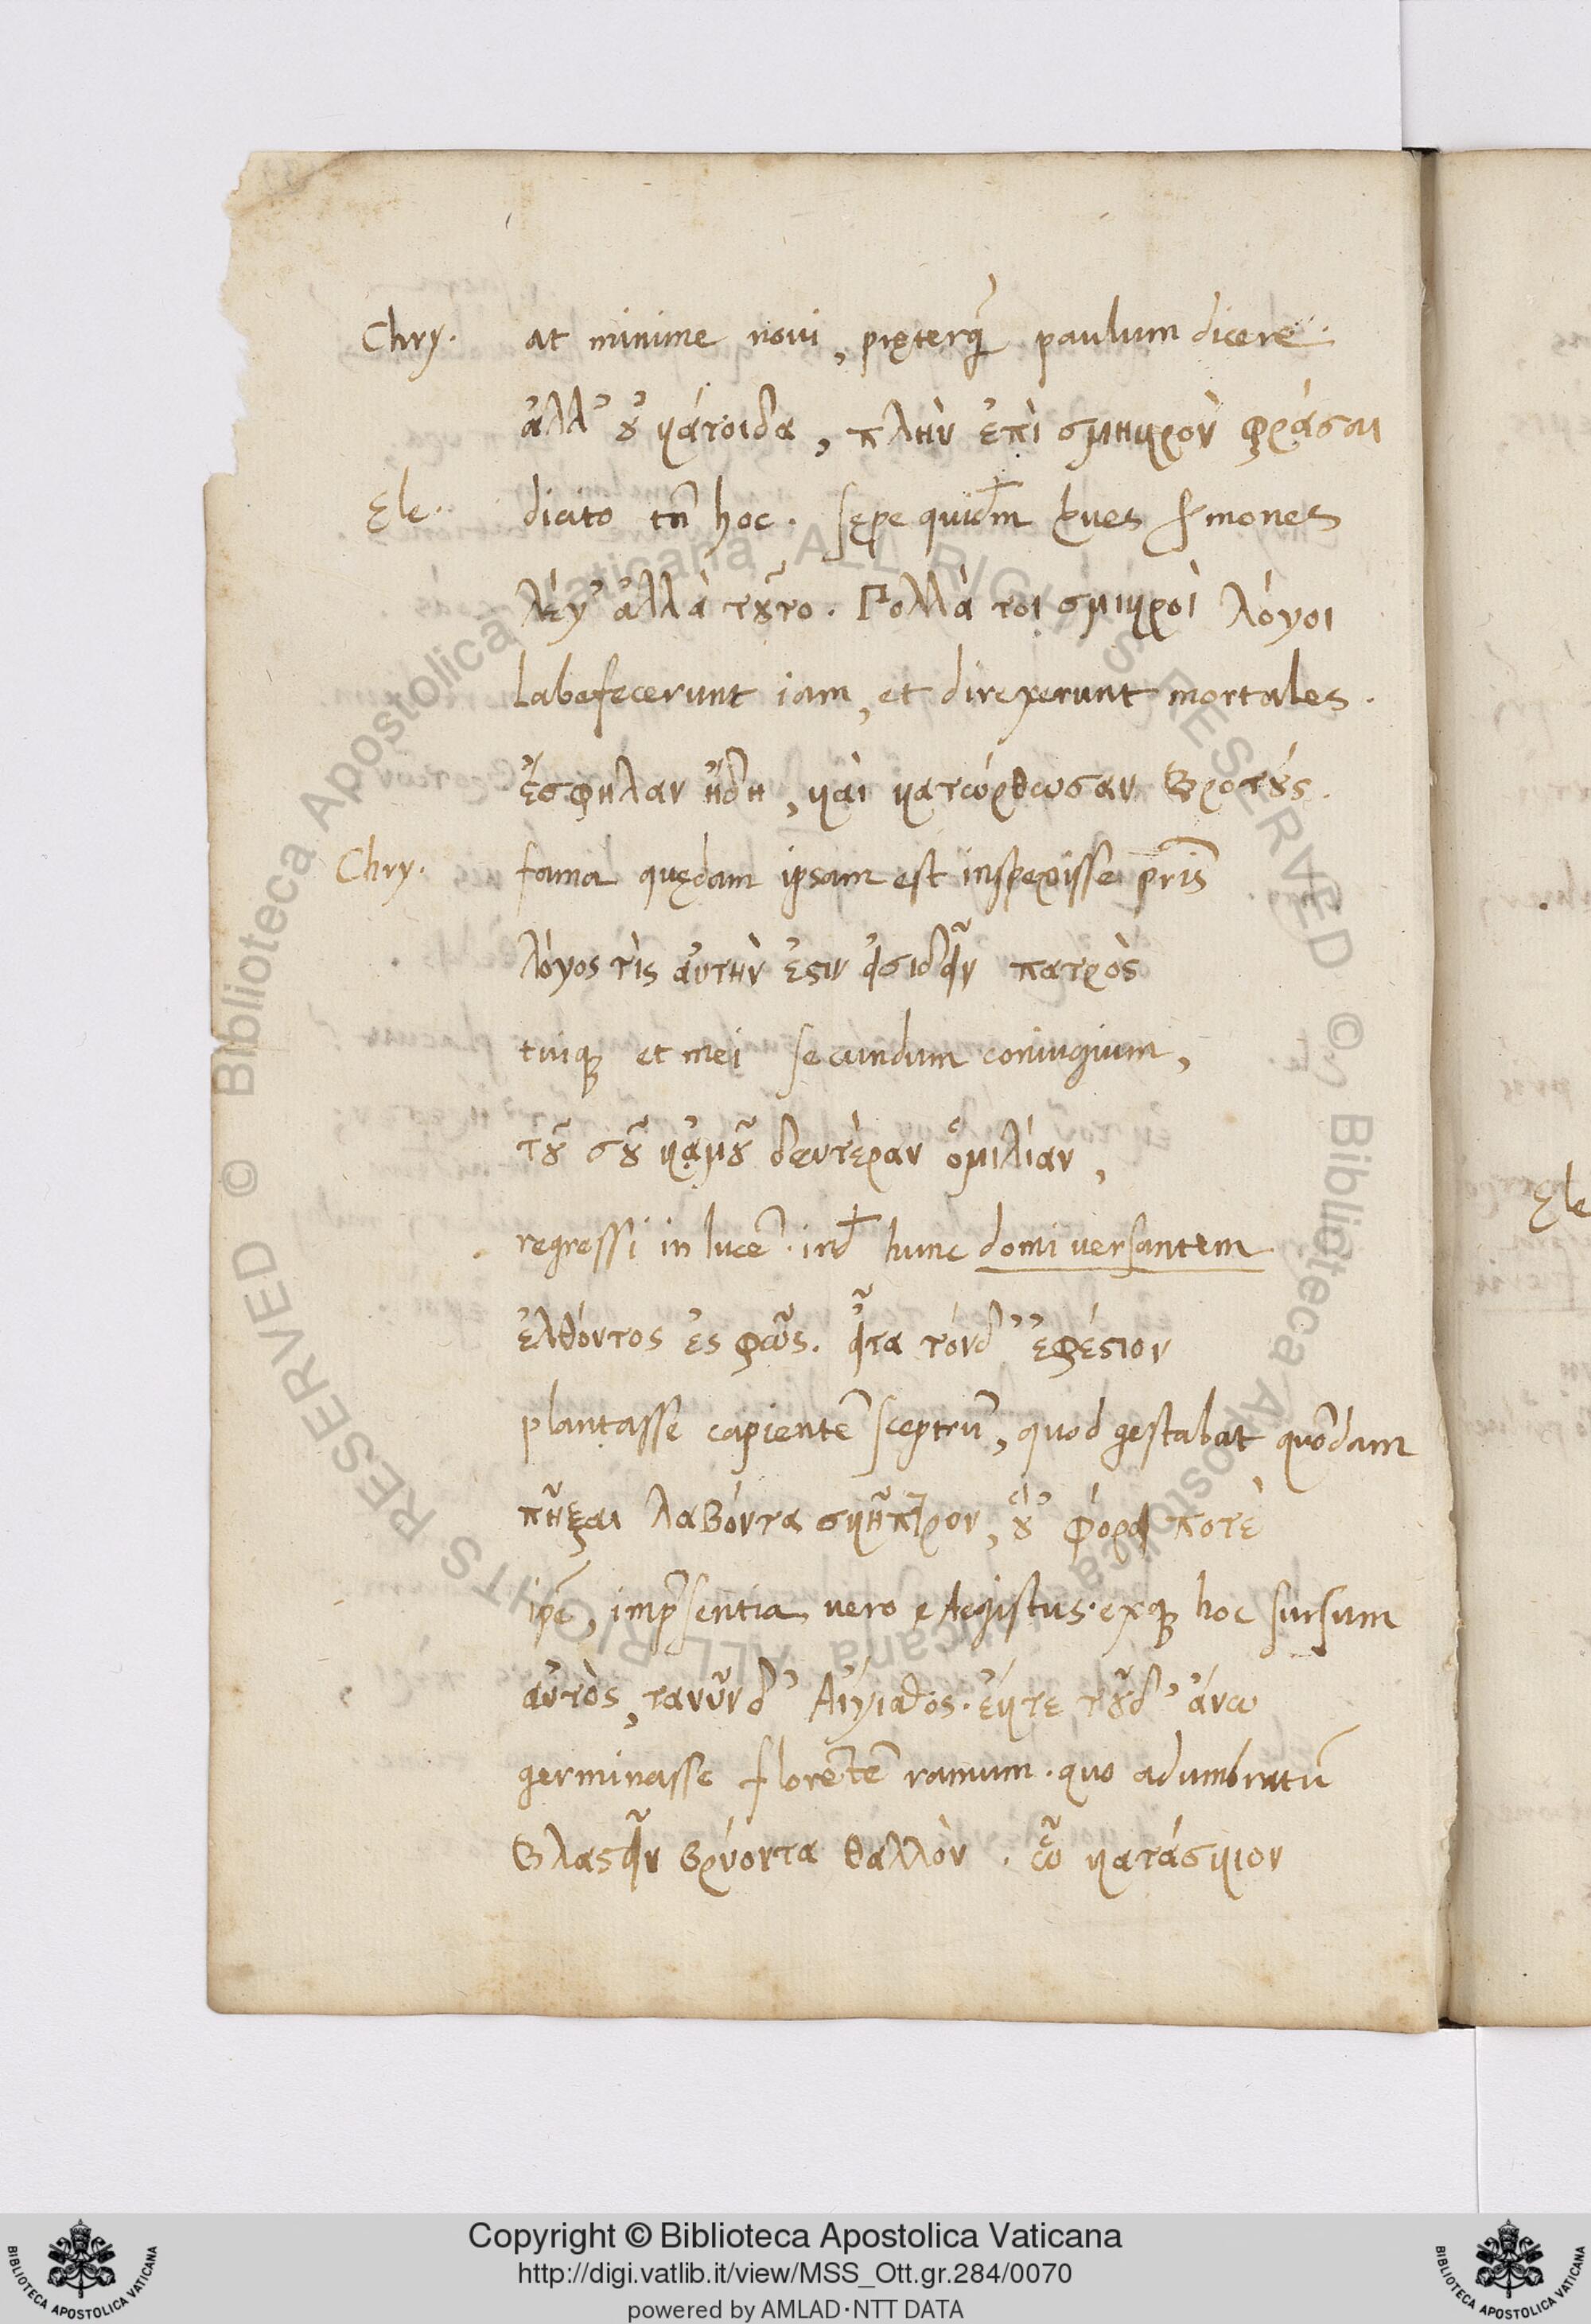 Chry. at minime noui, pręterq̃ paulum dicere.
ἀλλ' οὐ κάτοιδα, πλὴν ἐπὶ σμηκρὸν φράσαι
Ele. dicito tñ hoc. sępe quidm̃ breues sermones
λέγ' ἀλλὰ τοῦτο. πολλά τοι σμικροὶ λόγοι
labefecerunt iam, et direxerunt mortales.
ἔσφηλαν ἤδη, καὶ κατώρθωσαν βροτούς.
Chry. fama quędam ipsam est inspexisse pr̃is
λόγος τὶς αὐτὴν ἐστιν εἰσιδεῖν πατρὸς
tuiq; et mei secundum coniugium,
τοῦ σοῦ κἀμοῦ δευτέραν ὁμιλίαν,
regressi in lucē. ind̃ hunc domi uersantem
ἐλθόντος ἐς φῶς. εἶτα τόνδ' ἐφέστιον
plantasse capientē sceptrū, quod gestabat quondam
πῆξαι λαβόντα σκῆπτρον, οὗ 'φόρει ποτὲ
ipē, imp̃sentia uero Aegistus. exq; hoc sursum
αὐτὸς, τανῦν δ' Αἴγισθος. ἔκτε τοῦδ' ἄνω
germinasse florētē ramum. quo adumbratū
βλαστεῖν βρύοντα θαλλὸν. ᾧ κατάσκιον
Ele
Copyright © Biblioteca Apostolica Vaticana
http://digi.vatlib.it/view/MSS_Ott.gr.284/0070
powered by AMLAD·NTT DATA